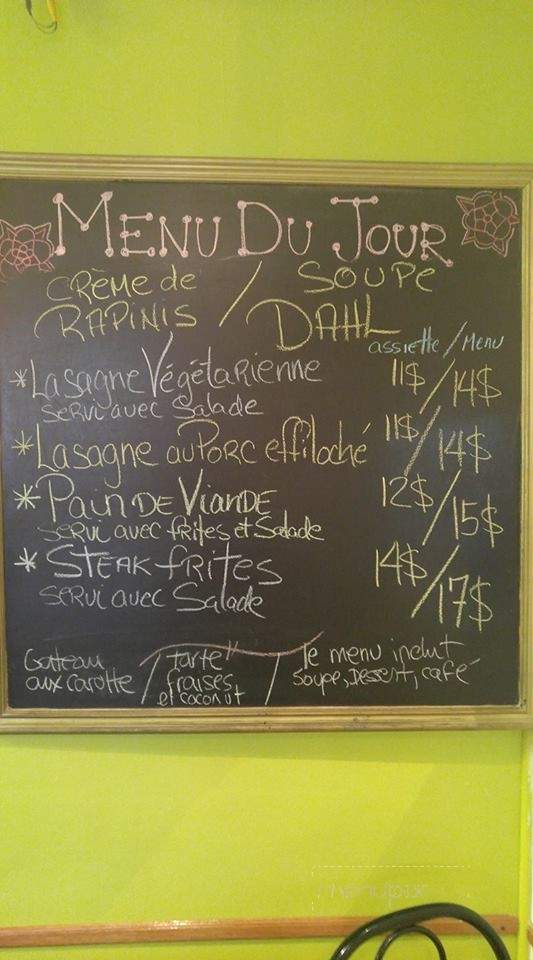 MENU DU JOUR
CRÈME de / SOUPE
RAPINIS / DAHL
assiette / Menu
*Lasagne Végétarienne 11$ / 14$
servi avec Salade
*Lasagne au Porc effiloché 11$ / 14$
*PAIN DE VIANDE 12$ / 15$
servi avec frites et Salade
*STEAK frites 14$ / 17$
servi avec Salade
Gatteau tarte le menu inclut
aux carotte fraises soupe, Dessert, café
et coconut
menupix